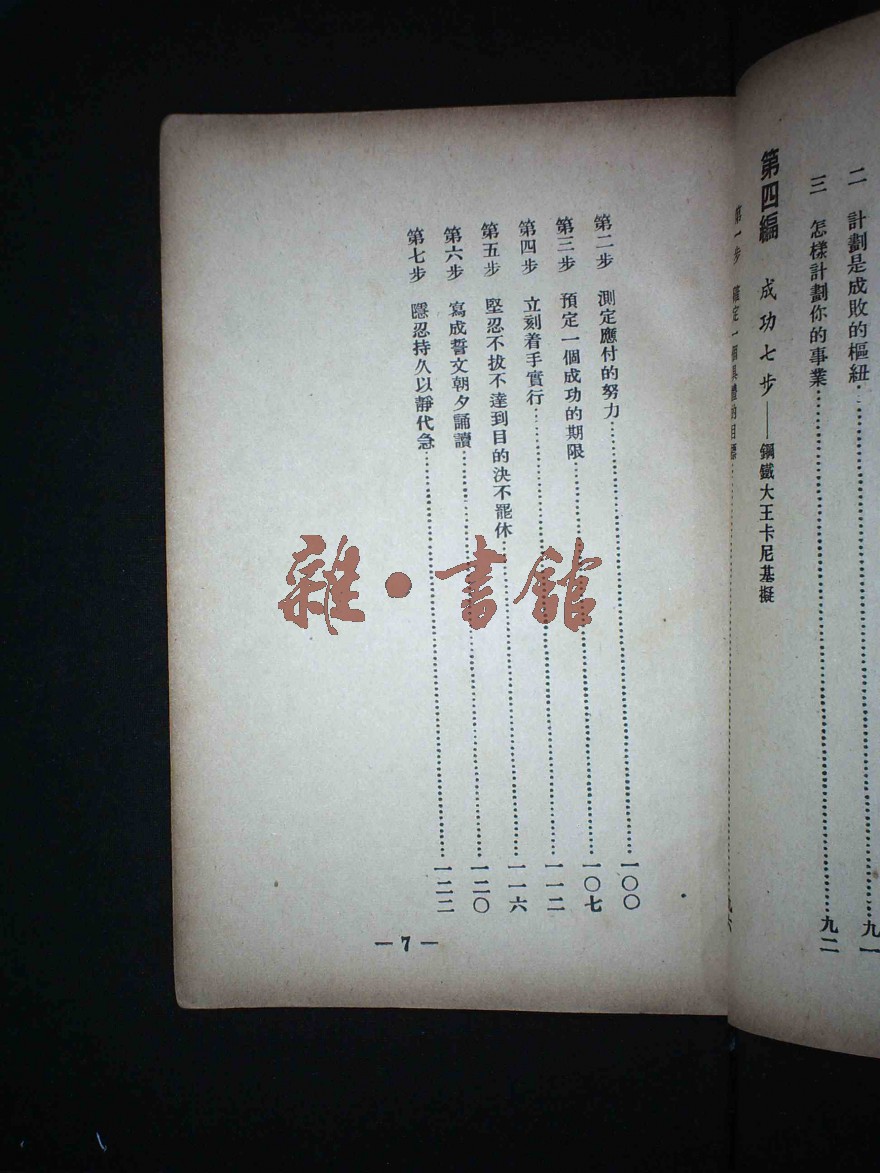 二　計劃是成敗的樞紐……九一
三　怎樣計劃你的事業……九二
第四編　成功七步——鋼鐵大王卡尼基擬
第一步　確定一個具體的目標……九六
第二步　測定應付的努力……一〇〇
第三步　預定一個成功的期限……一〇七
第四步　立刻着手實行……一一二
第五步　堅忍不拔不達到目的決不罷休……一一六
第六步　寫成誓文朝夕誦讀……一二〇
第七步　隱忍持久以靜代急……一二二
— 7 —
雜·書館